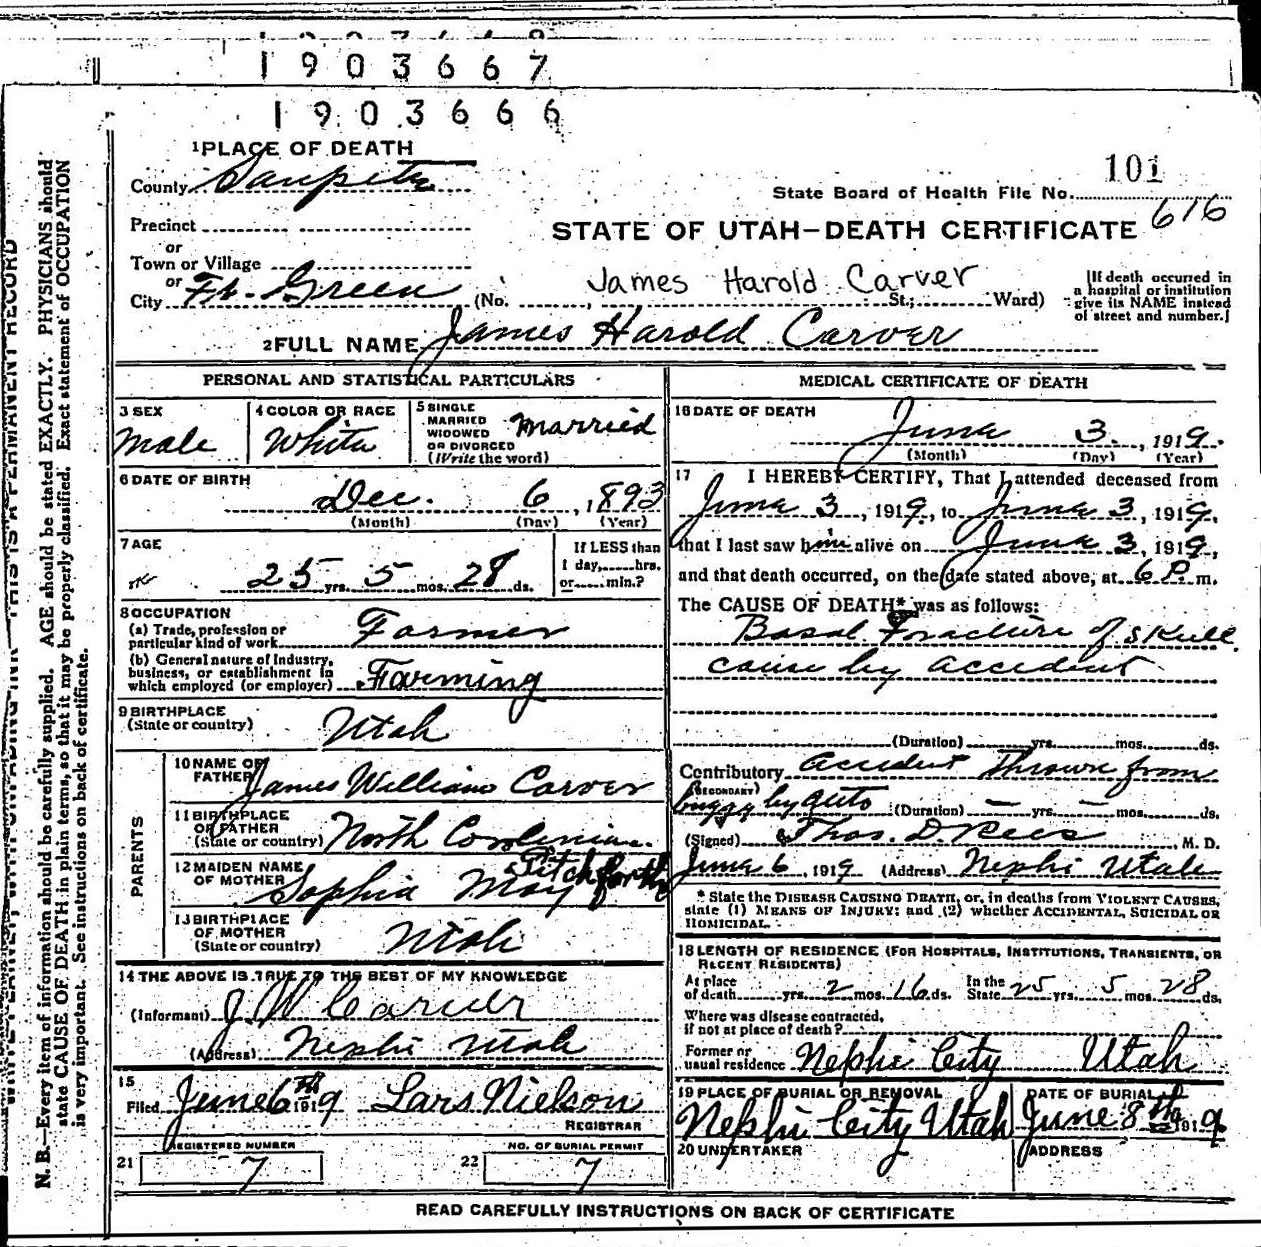 1903667
1903666
1 PLACE OF DEATH
County Sanpete
101
State Board of Health File No.
616
Precinct
STATE OF UTAH—DEATH CERTIFICATE
or
Town or Village
or
City Ft. Green (No. St.; Ward)
James Harold Carver
[If death occurred in
a hospital or institution
give its NAME instead
of street and number.]
2 FULL NAME James Harold Carver
PERSONAL AND STATISTICAL PARTICULARS
3 SEX
Male
4 COLOR OR RACE
White
5 SINGLE
MARRIED
WIDOWED
OR DIVORCED
(Write the word)
Married
6 DATE OF BIRTH
Dec. 6, 1893
(Month) (Day) (Year)
7 AGE
25 yrs. 5 mos. 28 ds.
If LESS than
1 day,.....hrs.
or.....min.?
8 OCCUPATION
(a) Trade, profession or
particular kind of work Farmer
(b) General nature of Industry,
business, or establishment in
which employed (or employer) Farming
9 BIRTHPLACE
(State or country) Utah
PARENTS
10 NAME OF
FATHER James William Carver
11 BIRTHPLACE
OF FATHER
(State or country) North
12 MAIDEN NAME
OF MOTHER Sophia May Pitchforth
13 BIRTHPLACE
OF MOTHER
(State or country) Utah
14 THE ABOVE IS TRUE TO THE BEST OF MY KNOWLEDGE
(Informant) J. W. Carver
(Address) Nephi Utah
15
Filed June 6th 1919 Lars Nielson
REGISTRAR
REGISTERED NUMBER
21 7
NO. OF BURIAL PERMIT
22 7
MEDICAL CERTIFICATE OF DEATH
16 DATE OF DEATH
June 3, 1919.
(Month) (Day) (Year)
17 I HEREBY CERTIFY, That I attended deceased from
June 3, 1919, to June 3, 1919,
that I last saw him alive on June 3, 1919,
and that death occurred, on the date stated above, at 6 P. m.
The CAUSE OF DEATH* was as follows:
Basal Fracture of Skull
cause by accident
(Duration) yrs. mos. ds.
Contributory accident Thrown from
(SECONDARY)
buggy by auto (Duration) — yrs. — mos. ds.
(Signed) Thos. D. Rees, M. D.
June 6, 1919 (Address) Nephi Utah
* State the DISEASE CAUSING DEATH, or, in deaths from VIOLENT CAUSES,
state (1) MEANS OF INJURY; and (2) whether ACCIDENTAL, SUICIDAL OR
HOMICIDAL.
18 LENGTH OF RESIDENCE (FOR HOSPITALS, INSTITUTIONS, TRANSIENTS, OR
RECENT RESIDENTS)
At place
of death yrs. 2 mos. 16 ds.
In the
State 25 yrs. 5 mos. 28 ds.
Where was disease contracted,
if not at place of death?
Former or
usual residence Nephi City Utah
19 PLACE OF BURIAL OR REMOVAL
Nephi City Utah
DATE OF BURIAL
June 8th 1919
20 UNDERTAKER
ADDRESS
READ CAREFULLY INSTRUCTIONS ON BACK OF CERTIFICATE
N. B.—Every item of information should be carefully supplied. AGE should be stated EXACTLY. PHYSICIANS should
state CAUSE OF DEATH in plain terms, so that it may be properly classified. Exact statement of OCCUPATION
is very important. See instructions on back of certificate.